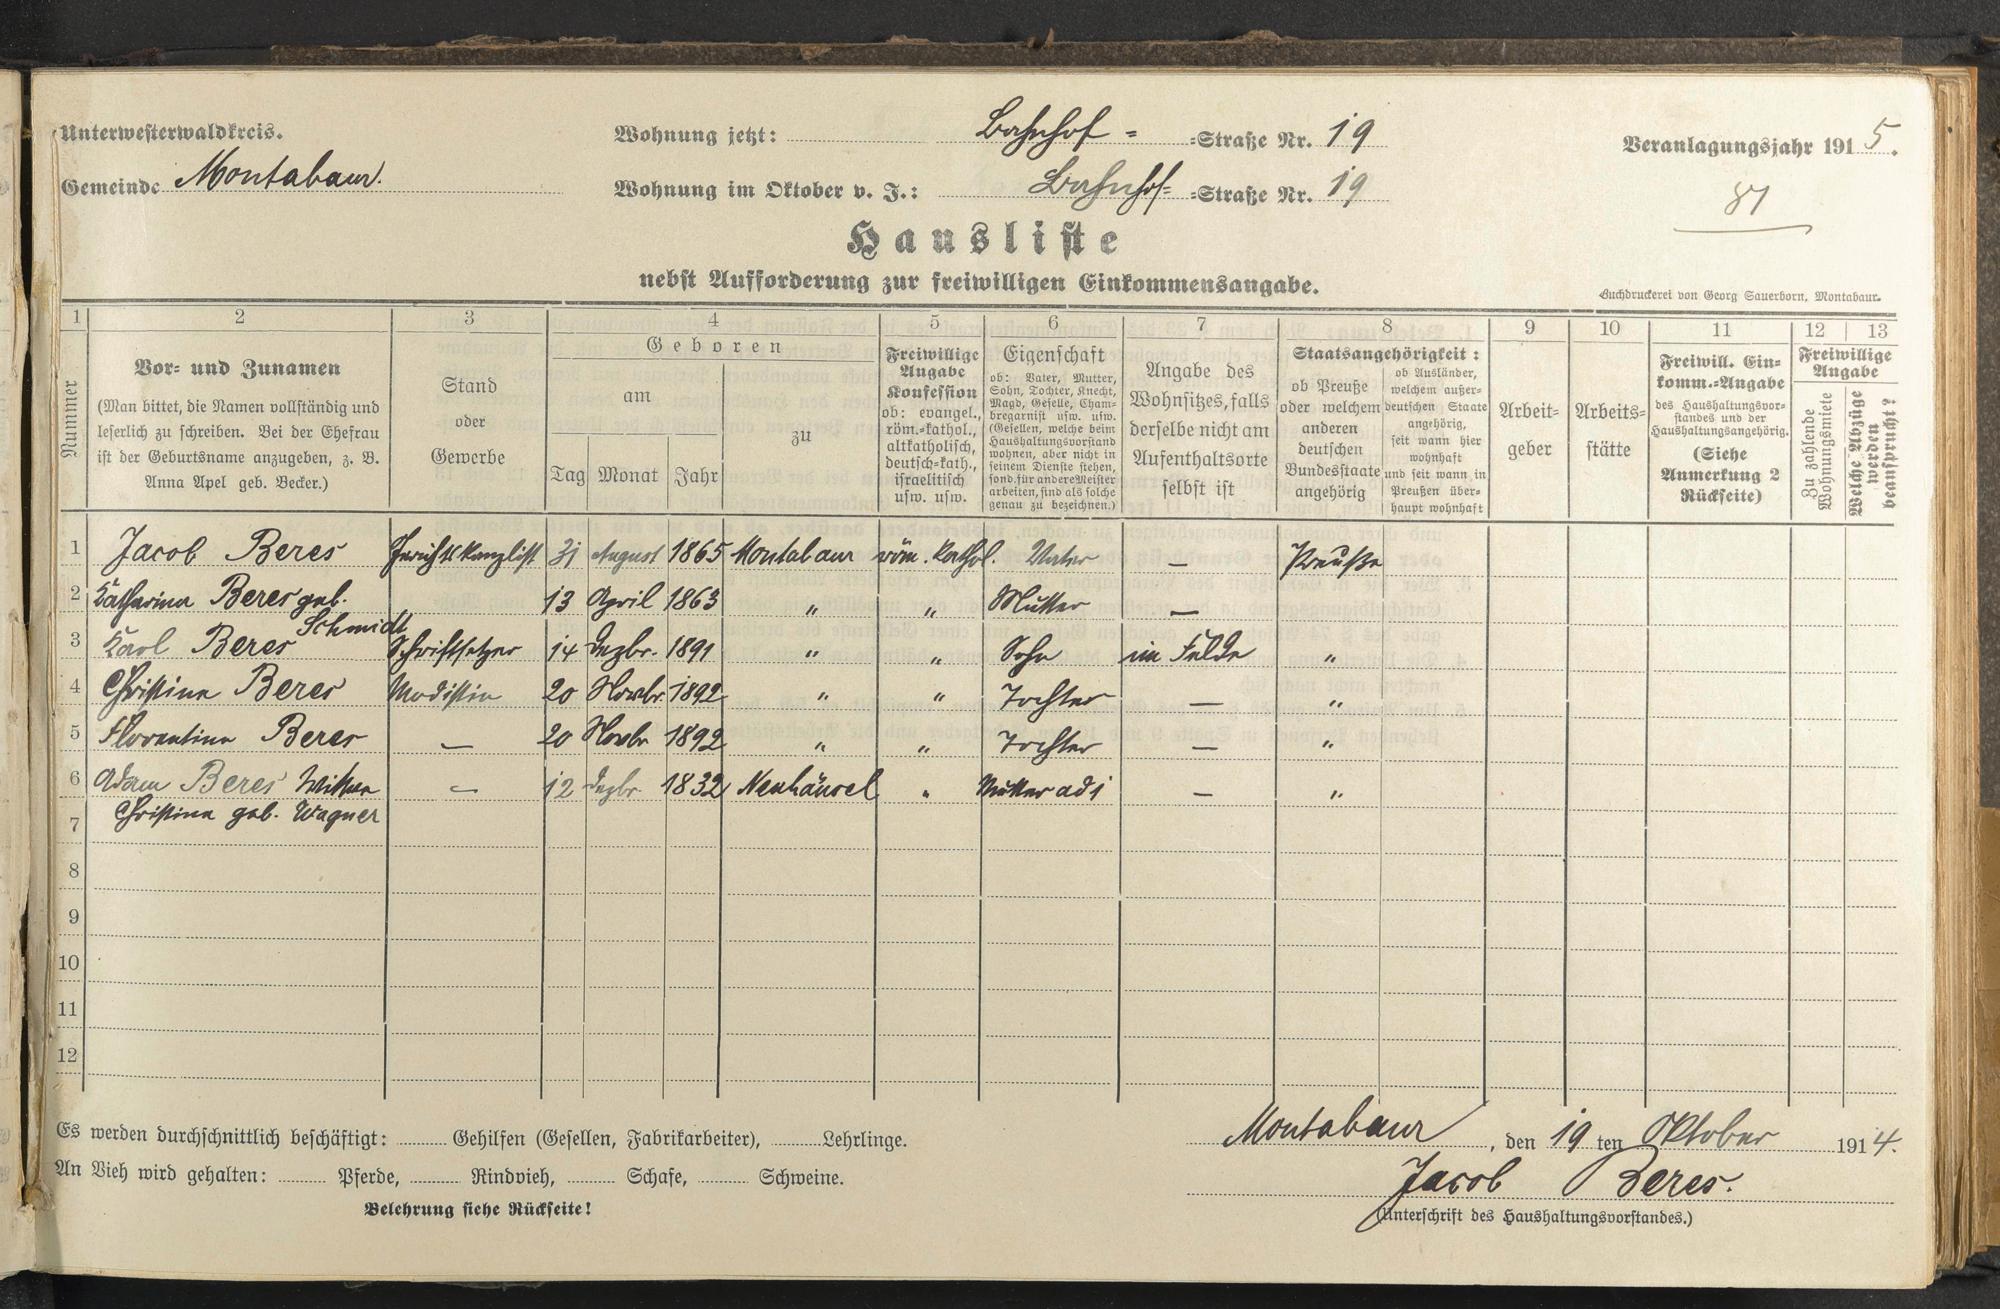 Unterwesterwaldkreis.
Gemeinde Montabaur.
Wohnung jetzt: Bahnhof = =Straße Nr. 19
Wohnung im Oktober v. J.: Bahnhof= =Straße Nr. 19
Veranlagungsjahr 1915.
81
Hausliste
nebst Aufforderung zur freiwilligen Einkommensangabe.
Buchdruckerei von Georg Sauerborn, Montabaur.
1 2 3 4 5 6 7 8 9 10 11 12 13
Nummer
Vor- und Zunamen
(Man bittet, die Namen vollständig und
leserlich zu schreiben. Bei der Ehefrau
ist der Geburtsname anzugeben, z. B.
Anna Apel geb. Becker.)
Stand
oder
Gewerbe
Geboren
am
Tag Monat Jahr
zu
Freiwillige
Angabe
Konfession
ob: evangel.,
röm.=kathol.,
altkatholisch,
deutsch=kath.,
israelitisch
usw. usw.
Eigenschaft
ob: Vater, Mutter,
Sohn, Tochter, Knecht,
Magd, Geselle, Cham-
bregarnist usw. usw.
(Gesellen, welche beim
Haushaltungsvorstand
wohnen, aber nicht in
seinem Dienste stehen,
sond. für andere Meister
arbeiten, sind als solche
genau zu bezeichnen.)
Angabe des
Wohnsitzes, falls
derselbe nicht am
Aufenthaltsorte
selbst ist
Staatsangehörigkeit:
ob Preuße
oder welchem
anderen
deutschen
Bundesstaate
angehörig
ob Ausländer,
welchem außer-
deutschen Staate
angehörig,
seit wann hier
wohnhaft
und seit wann in
Preußen über-
haupt wohnhaft
Arbeit-
geber
Arbeits-
stätte
Freiwill. Ein-
komm.=Angabe
des Haushaltungsvor-
standes und der
Haushaltungsangehörig.
(Siehe
Anmerkung 2
Rückseite)
Freiwillige
Angabe
Zu zahlende
Wohnungsmiete
Welche Abzüge
werden
beansprucht?
1 Jacob Beres Gerichtskanzlist 31 August 1865 Montabaur röm. kathol. Vater — Preuße
2 Katharina Beres geb. 13 April 1863 " " Mutter —
Schmidt
3 Karl Beres Schriftsetzer 14 Dezbr. 1891 " " Sohn im Felde "
4 Christina Beres Modistin 20 Novbr. 1892 " " Tochter — "
5 Florentina Beres — 20 Novbr 1892 " " Tochter — "
6 Adam Beres Witwe — 12 Dezbr 1832 Neuhäusel " Mutter ad 1 — "
Christina geb. Wagner
7
8
9
10
11
12
Es werden durchschnittlich beschäftigt: Gehilfen (Gesellen, Fabrikarbeiter), Lehrlinge.
An Vieh wird gehalten: Pferde, Rindvieh, Schafe, Schweine.
Belehrung siehe Rückseite!
Montabaur, den 19 ten Oktober 1914.
Jacob Beres.
(Unterschrift des Haushaltungsvorstandes.)